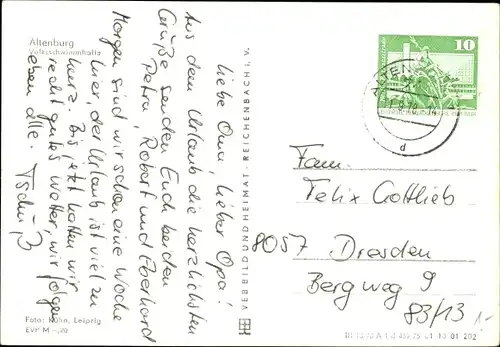 Altenburg
Volksschwimmhalle
Liebe Oma, lieber Opa!
Aus dem Urlaub die herzlichsten
Grüße senden Euch beiden
Petra, Robert und Eberhard
Morgen sind wir schon eine Woche
hier, der Urlaub ist viel zu
kurz. Bis jetzt hatten wir
recht gutes Wetter, wir folgen
eben alle. Tschü,
Foto: Kühn, Leipzig
EVP M -,20
VEB BILD UND HEIMAT REICHENBACH I. V.
10
ALTENBURG
d
Fam.
Felix Gottlieb
8057 Dresden
Bergweg 9
83/13
01 13 01 202